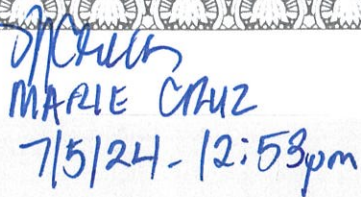 MARIE CRUZ
7/5/24 - 12:53pm